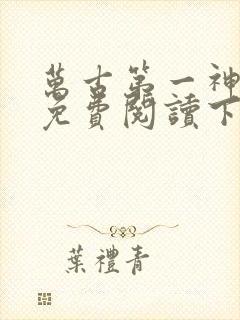 萬古第一神
免費閱讀下
葉禮青